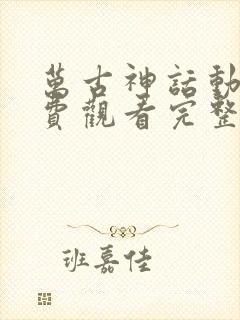 萬古神話動
費觀看完整
班嘉佳